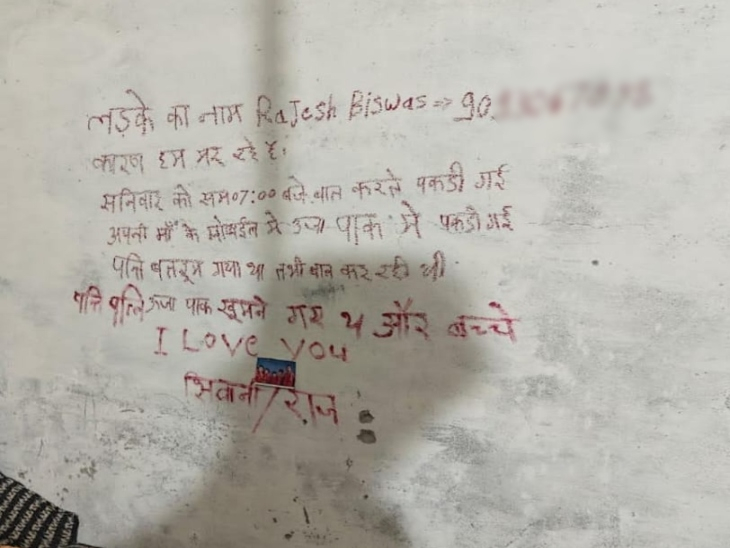 लड़के का नाम Rajesh Biswas => 90
कारण हम मर रहे है।
सनिवार को सम 07:00 बजे बात करते पकडी गई
अपनी माँ के मोबाईल मे उर्जा पाक मे पकडी गई
पति बातरूम गया था तभी बात कर रही थी
पति पत्नि उर्जा पाक घूमने गए थ और बच्चे
I Love You
शिवानी / राज